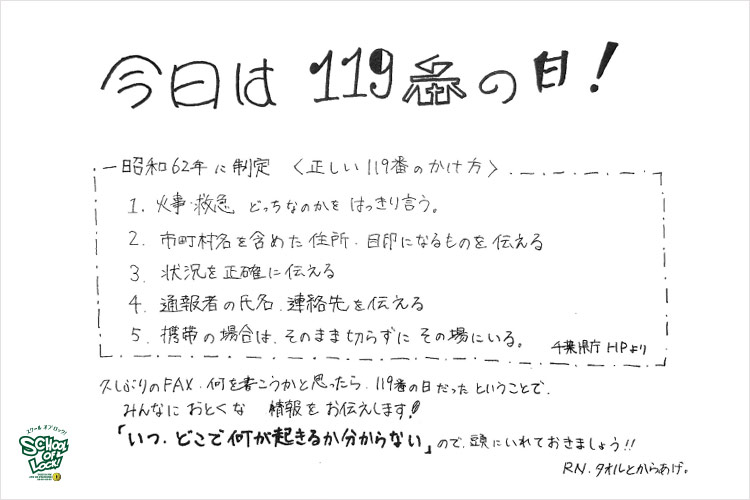 今日は 119番の日！
昭和62年に制定 〈正しい119番のかけ方〉
1. 火事・救急 どっちなのかを はっきり言う。
2. 市町村名を含めた 住所・目印になるものを 伝える
3. 状況を正確に伝える
4. 通報者の氏名、連絡先を伝える
5. 携帯の場合は、そのまま切らずに その場にいる。
千葉県庁 HPより
久しぶりのFAX、何を書こうかと思ったら、119番の日だった ということで、
みんなに おとくな 情報を お伝えします！
「いつ、どこで何が起きるか分からない」ので、頭にいれておきましょう!!
RN. タオルとからあげ。
スクール オブ ロック！
SCHOOL OF LOCK!